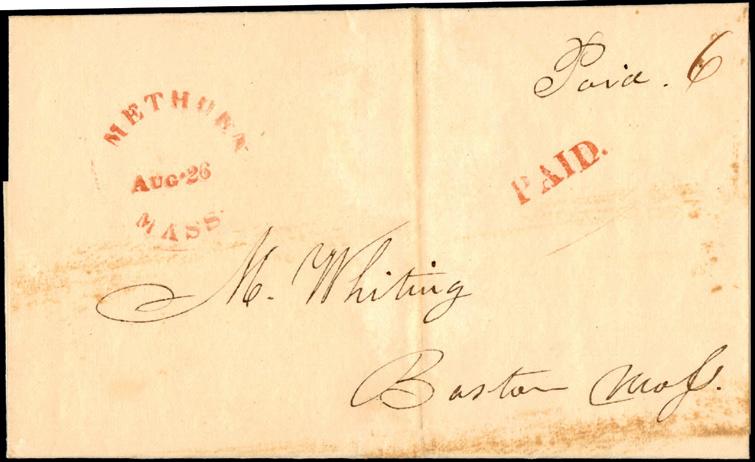 Paid. 6
METHUEN
AUG. 26
MASS
PAID.
M. Whiting
Boston Mass.